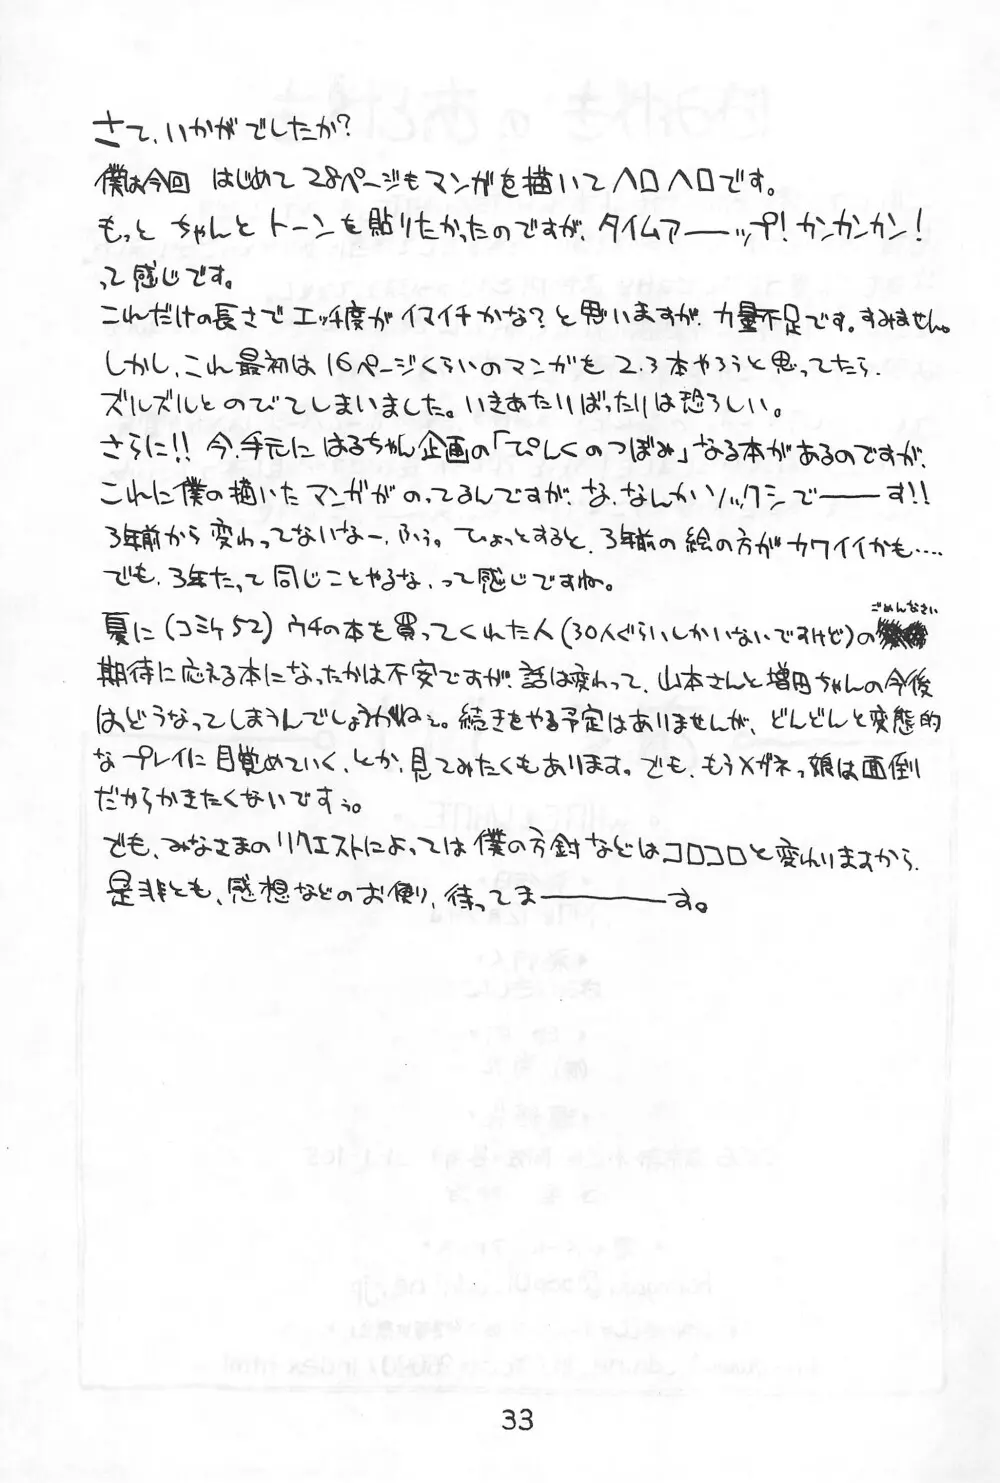 さて、いかがでしたか?
僕は今回 はじめて28ページもマンガを描いてヘロヘロです。
もっと ちゃんと トーンを貼りたかったのですが、タイムアーーップ!カンカンカン!
って感じです。
これだけの長さで エッチ度が イマイチかな?と思いますが、力量不足です。すみません。
しかし、これ最初は16ページくらいのマンガを 2、3本やろうと思ってたら、
ズルズルとのびてしまいました。いきあたりばったりは恐ろしい。
さらに!! 今、手元に はるちゃん企画の「ぴんくのつぼみ」なる本があるのですが、
これに僕の描いたマンガがのってるんですが、な、なんかソックシでーーーす!!
3年前から変わってないなー、ふぅ。ひょっとすると、3年前の絵の方がカワイイかも‥‥
でも、3年たって同じことやるな、って感じですね。
ごめんなさい
夏に(コミケ52)ウチの本を買ってくれた人(30人ぐらいしかいないですけど)の
期待に応える本になったかは不安ですが、話は変わって、山本さんと増田ちゃんの今後
はどうなってしまうんでしょうがねぇ。続きをやる予定はありませんが、どんどんと変態的
なプレイに目覚めていく、とか、見てみたくもあります。でも、もうメガネっ娘は面倒
だからかきたくないですぅ。
でも、みなさまのリクエストによっては僕の方針などはコロコロと変わりますから、
是非とも、感想などのお便り、待ってまーーーーーす。
33